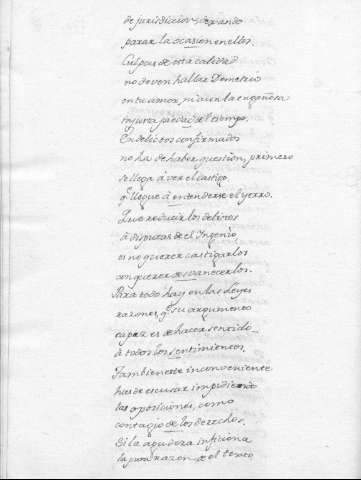 de jurisdiccion, dexando
parar la ocasion en ellos.
Culpas de esta calidad
no deven hallar Demetrio
en tu amor, ni aun la engañosa
injusta piedad del tiempo.
En delictos confirmados
no ha de haber question, primero
se llega à ver el castigo
q.e llegue à entenderse el yerro.
Que reducir los delitos
à disputas de el Ingenio
es no querer castigarlos
con querer desvanecerlos.
Para todo hay en las Leyes
razones, q.e su argumento
capaz es de hacer sentido
à todos los sentimientos.
Tambien este inconveniente
has de escusar impidiendo
las oposiciones, como
contagio de los derechos.
Si la agudeza inficiona
la pura razon de el texto